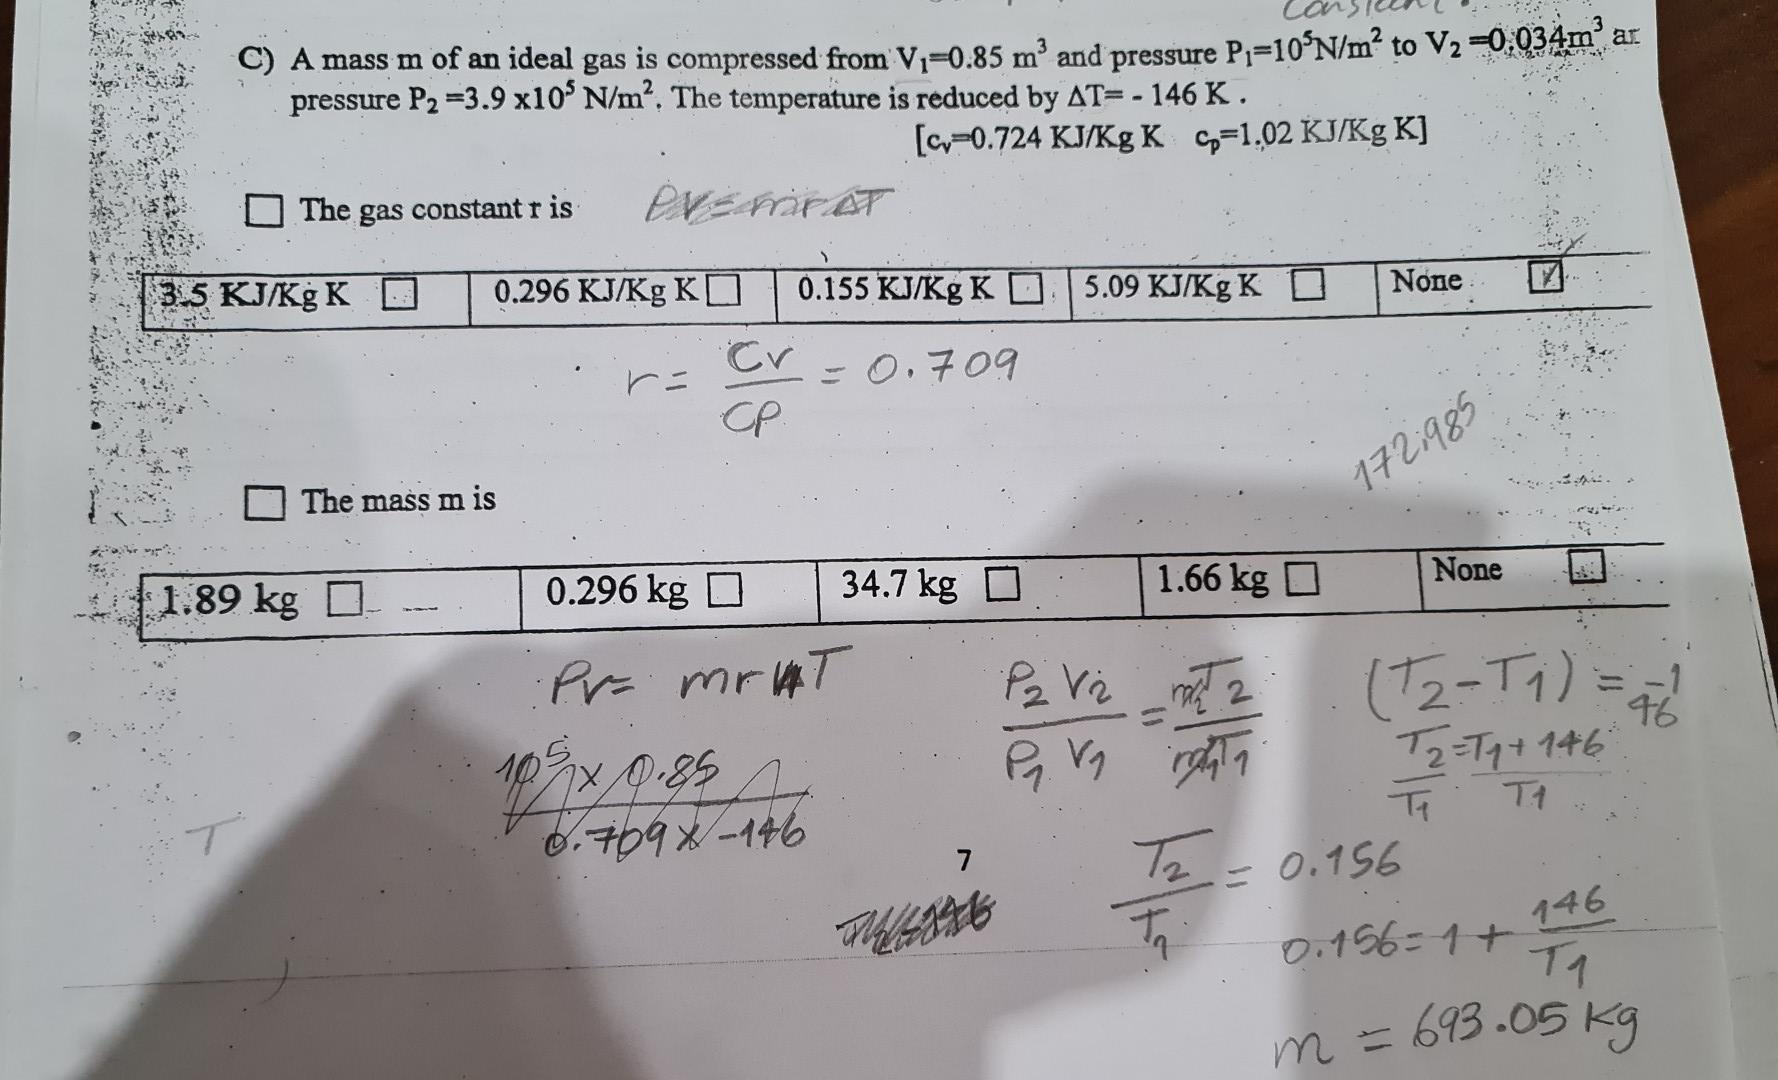 C) A mass m of an ideal gas is compressed from V₁=0.85 m³ and pressure P₁=10⁵N/m² to V₂ =0.034m³ ar
pressure P₂ =3.9 x10⁵ N/m². The temperature is reduced by ΔT= - 146 K .
[cᵥ=0.724 KJ/Kg K cₚ=1.02 KJ/Kg K]
☐ The gas constant r is PV=mrΔT
3.5 KJ/Kg K ☐ 0.296 KJ/Kg K ☐ 0.155 KJ/Kg K ☐ 5.09 KJ/Kg K ☐ None ☑
r = Cv/CP = 0.709
172.985
☐ The mass m is
1.89 kg ☐ 0.296 kg ☐ 34.7 kg ☐ 1.66 kg ☐ None ☐
Pv= mr T
P₂ V₂ / P₁ V₁ = m₂T₂ / m₁T₁
(T₂-T₁) = -146
T₂/T₁ = T₁+146/T₁
10⁵ x 0.85 / 0.709 x -146
T
7
T₂/T₁ = 0.156
0.156 = 1 + 146/T₁
m = 693.05 kg